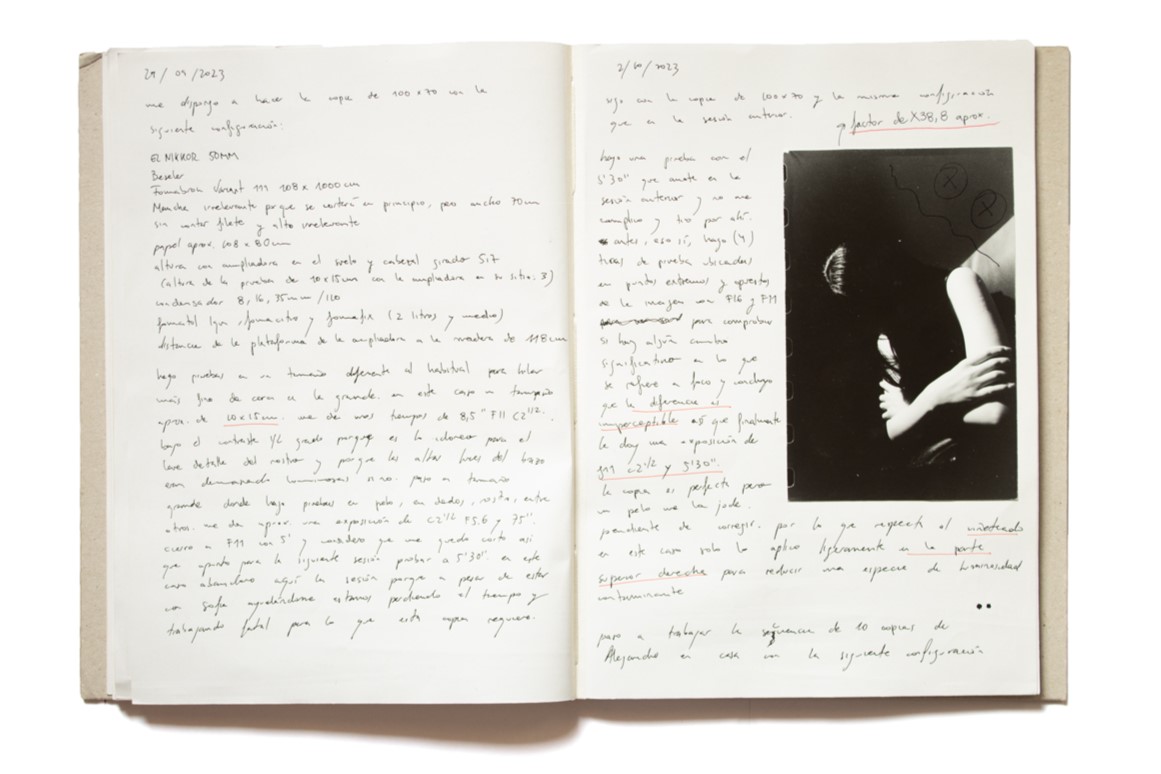 29/09/2023
me dispongo a hacer la copia de 100x70 con la
siguiente configuración:
EL NIKKOR 50MM
Beseler
Fomabrom Variant 111 108 x 1000 cm
Mancha irrelevante porque se cortará en principio, pero ancho 70 cm
sin contar filete y alto irrelevante
papel aprox. 108 x 80 cm
altura con ampliadora en el suelo y cabezal girado 517
(altura de la prueba de 10x15cm con la ampliadora en su sitio: 3)
condensador 8, 16, 35mm/110
fomatol lqn, fomacitro y fomafix (2 litros y medio)
distancia de la plataforma de la ampliadora a la madera de 118 cm
hago pruebas en un tamaño diferente al habitual para
más fino de cara a la grande. en este caso un tamaño
aprox. de 10x15cm. me da unos tiempos de 8,5" F11 C2 1/2.
bajo el contraste 1/2 grado porque es lo idóneo para el
leve detalle del rostro y porque las altas luces del brazo
eran demasiado luminosas si no. paso a tamaño
grande donde hago pruebas en pelo, en dedos, rostro, entre
otros. me da aprox. una exposición de C2 1/2 F5.6 y 75".
cierro a F11 con 5' y considero que me quedo corto así
que apunto para la siguiente sesión probar a 5'30". en este
caso abandono aquí la sesión porque a pesar de estar
con Sofía ayudándome estamos perdiendo el tiempo y
trabajando fatal para lo que esta copia requiere.
2/10/2023
sigo con la copia de 100x70 y la misma configuración
que en la sesión anterior.
factor de X38,8 aprox.
hago una prueba con el
5'30" que anoté en la
sesión anterior y no me
complico y tiro por ahí.
antes, eso sí, hago (4)
tiras de prueba ubicadas
en puntos extremos y opuestos
de la imagen con F16 y F11
para comprobar
si hay algún cambio
significativo en lo que
se refiere a foco y concluyo
que la diferencia es
imperceptible así que finalmente
le doy una exposición de
F11 C2 1/2 y 5'30".
la copia es perfecta pero
un pelo me la jode.
pendiente de corregir. por lo que respecta al viñeteado
en este caso solo lo aplico ligeramente en la parte
superior derecha para reducir una especie de luminosidad
contaminante
paso a trabajar la secuencia de 10 copias de
Alejandro en casa con la siguiente configuración